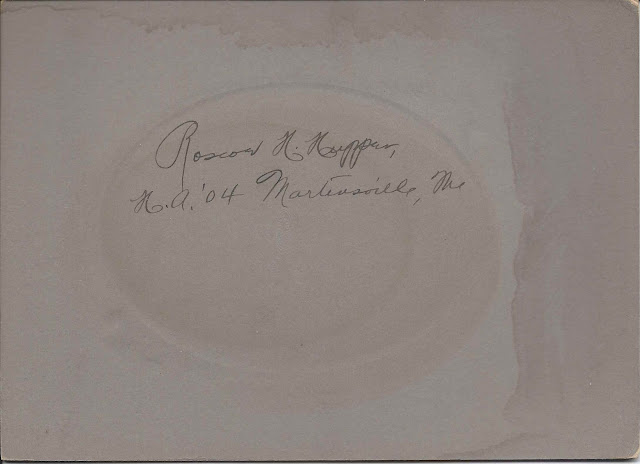 Roscoe H. Hupper,
H.A. '04 Martinsville, Me